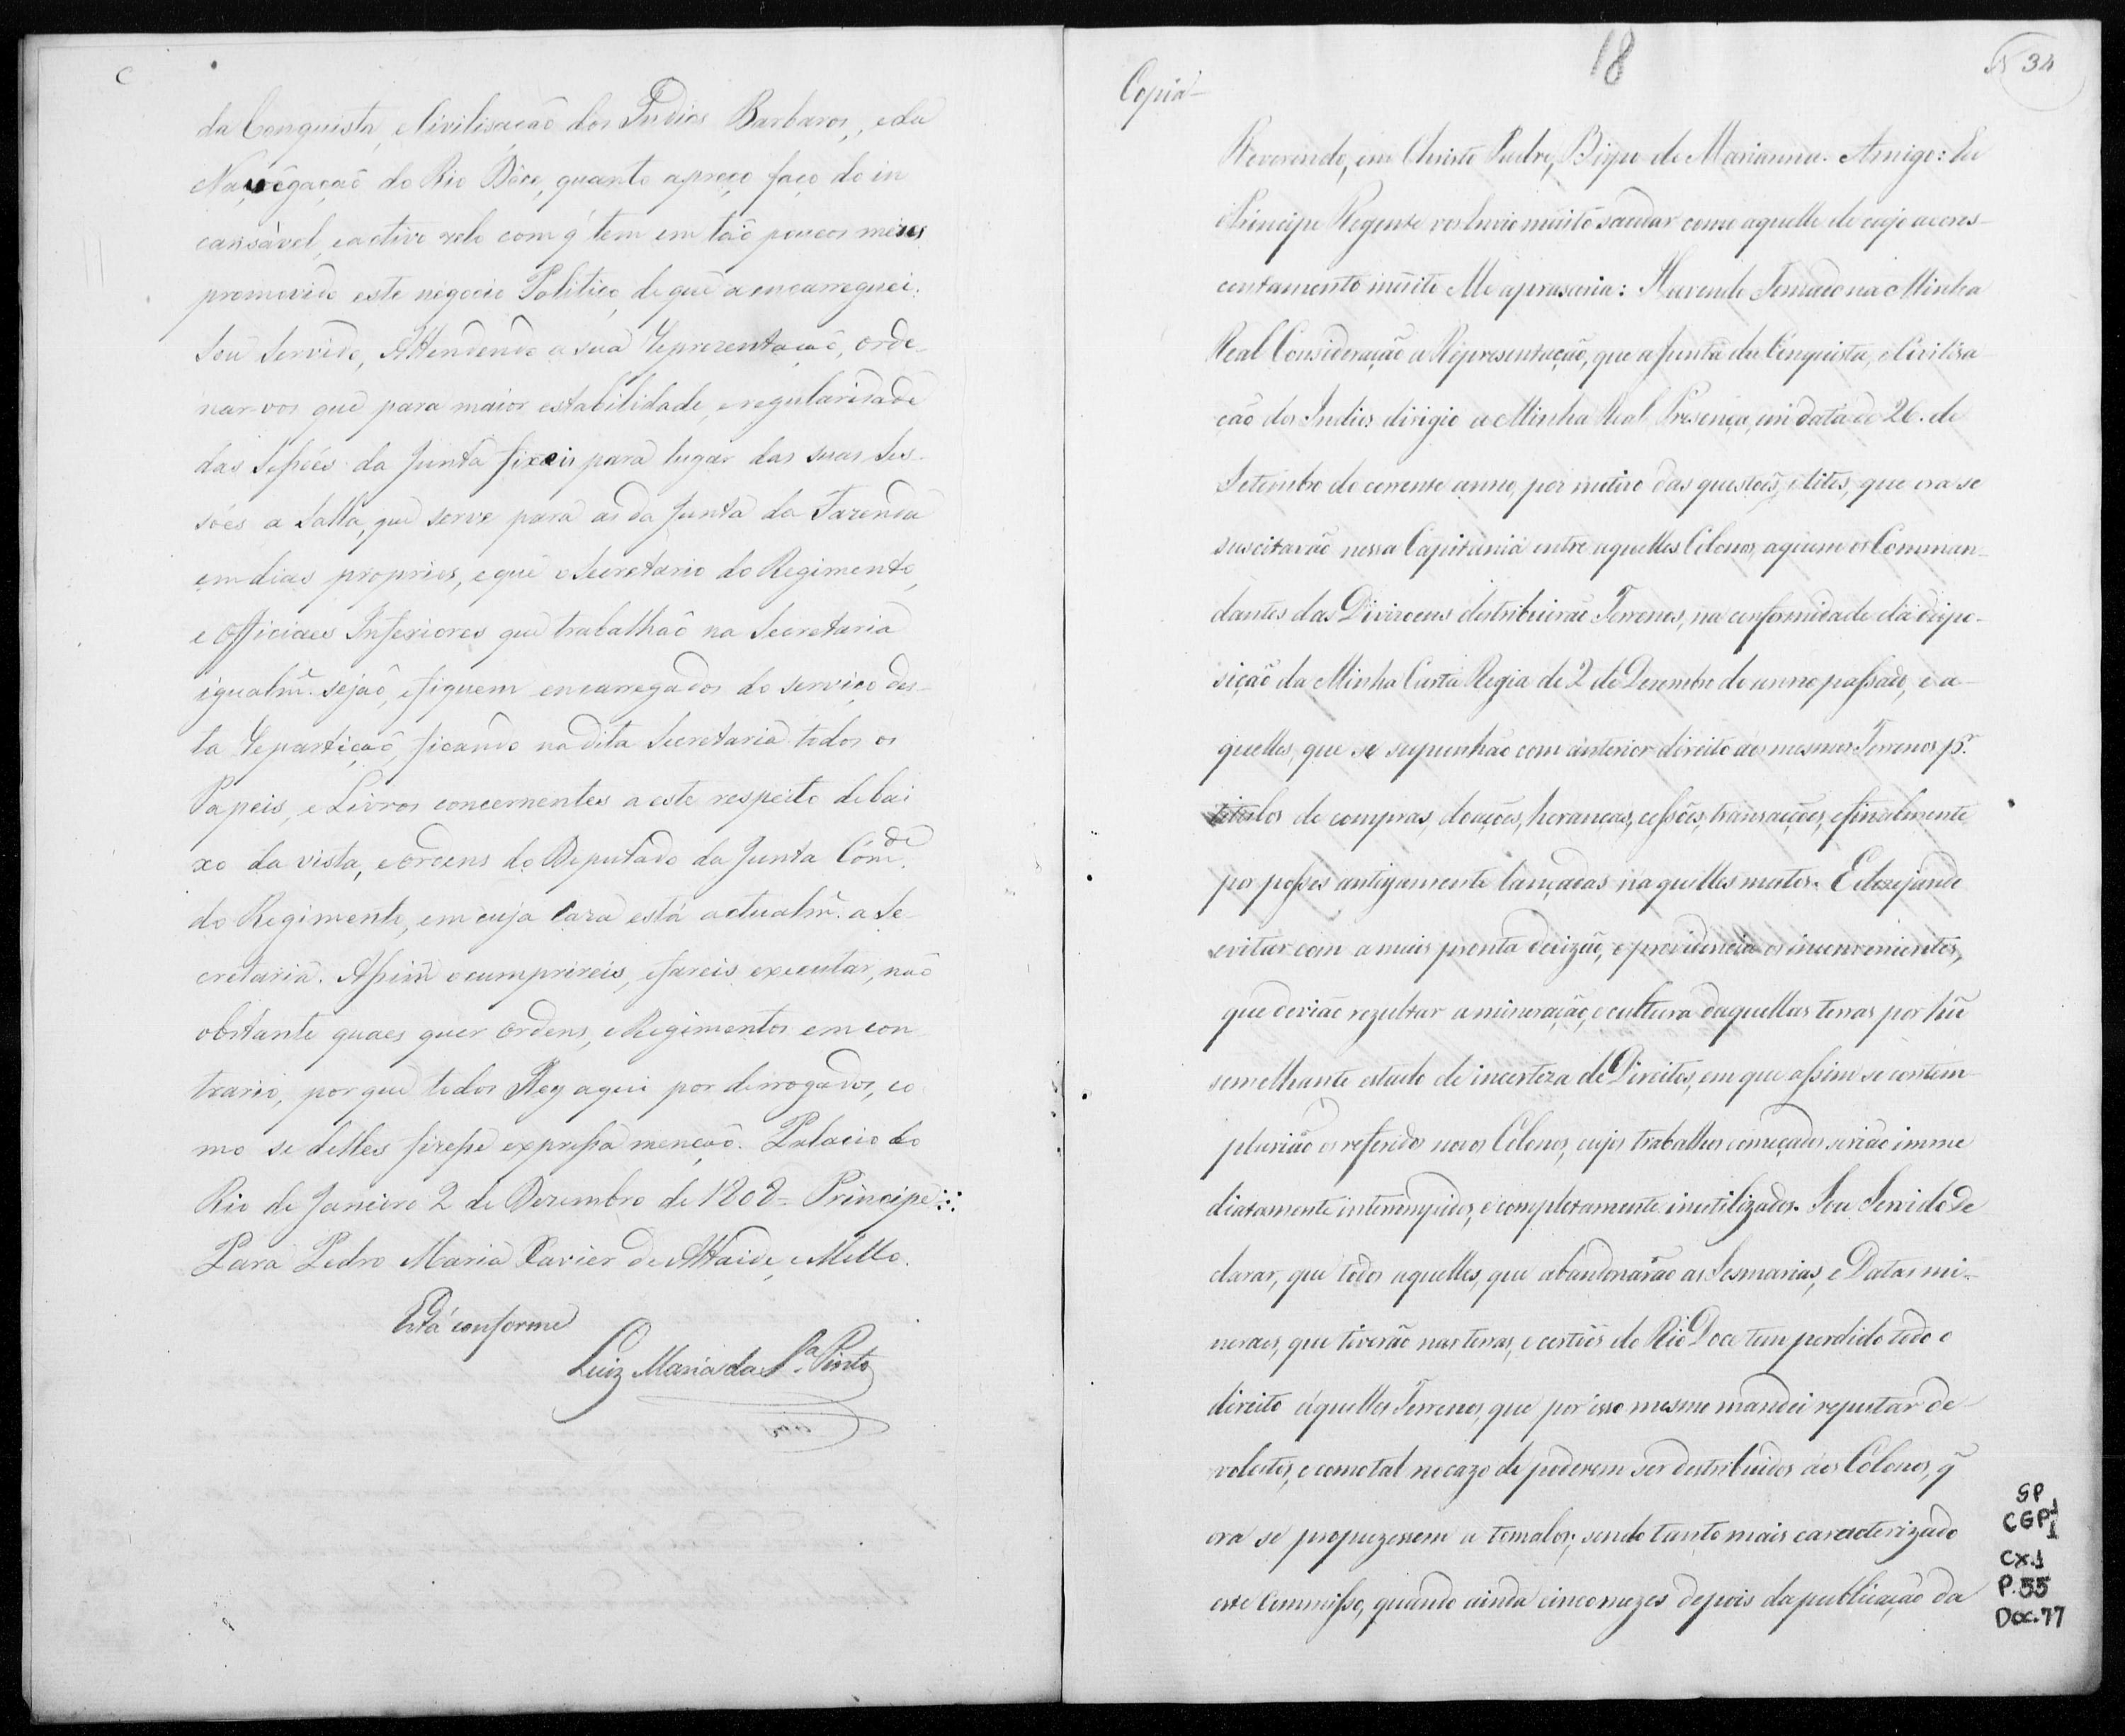 da Conquista, e Civilisaçaõ dos Indios Barbaros, e da
Navegaçaõ do Rio Dôce, quanto apreço faço do in
cansável, e activo zelo com q̃ tem em taõ poucos mezes
promovido este negocio Politico, de que a encarreguei.
Sou Servido, Attendendo a sua Reprezentaçaõ, orde-
nar-vos que para maior estabilidade, e regularidade
das Sessoẽs da Junta fixeis para lugar das suas Ses-
soẽs a Salla, que serve para as da Junta da Fazenda
em dias proprios, e que o Secretario do Regimento,
e Officiaes Inferiores que trabalhaõ na Secretaria
igualm.ᵉ sejaõ, e fiquem encarregados do serviço des-
ta Repartiçaõ, ficando na dita Secretaria todos os
Papeis, e Livros concernentes a este respeito debai
xo da vista, e ordens do Deputado da Junta Com.ᵈᵉ
do Regimento, em cuja Caza está actualm.ᵉ a Se-
cretaria. Assim o cumprireis, e fareis executar, naõ
obstante quaes quer Ordens, e Regimentos em con
trario, por que todos Hey aqui por derrogados, co
mo se delles fizesse expressa mençaõ. Palacio do
Rio de Janeiro 2 de Dezembro de 1808 = Principe :·:
Para Pedro Maria Xavier de Attaide, e Mello.
Está conforme
Luiz Maria da S.ᵃ Pinto
18
34
Copia-
Reverendo, em Christo Padre, Bispo de Marianna. Amigo: Eu
o Principe Regente vos Envio muito saudar como aquelle de cujo acres-
centamento muito Me aprasaria: Havendo Tomado na Minha
Real Consideração a Representação, que a Junta da Conquista, e Civilisa
ção dos Indios dirigio a Minha Real Presença, em data de 26. de
Setembro do corrente anno, por motivo das questoẽs, e lites, que ora se
suscitavão nessa Capitania entre aquelles Colonos, a quem os Comman-
dantes das Divizoens destribuirão Terrenos, na conformidade da dispo-
sição da Minha Carta Regia de 2 de Dezembro do anno passado, e a-
quelles, que se supunhão com anterior direito aos mesmos Terrenos p.ʳ
titulos de compras, doações, heranças, cessões, transacções, e finalmente
por posses antigamente lançadas naquelles matos. E dezejando
evitar com a mais pronta decizão, e providencia os inconvenientes,
que devião rezultar a mineração, e cultura daquellas terras por hũ
semelhante estado de incerteza de Direitos, em que assim se contem-
plarião os referidos novos Colonos, cujos trabalhos começados serião imme
diatamente interrompidos, e completamente inutilizados. Sou Servido de
clarar, que todos aquelles, que abandonarão as Sesmarias, e Datas mi-
neraes, que tiverão nas terras, e certões do Rio Doce tem perdido todo o
direito áquelles Terrenos, que por isso mesmo mandei reputar de
volutos, e como tal no cazo de poderem ser destribuidos aos Colonos, q̃
ora se propuzessem a tomalos; sendo tanto mais caracterizado
este Commisso, quando ainda cinco mezes depois da publicação da
SP
CGP¹
1
CX.1
P.55
Doc.77